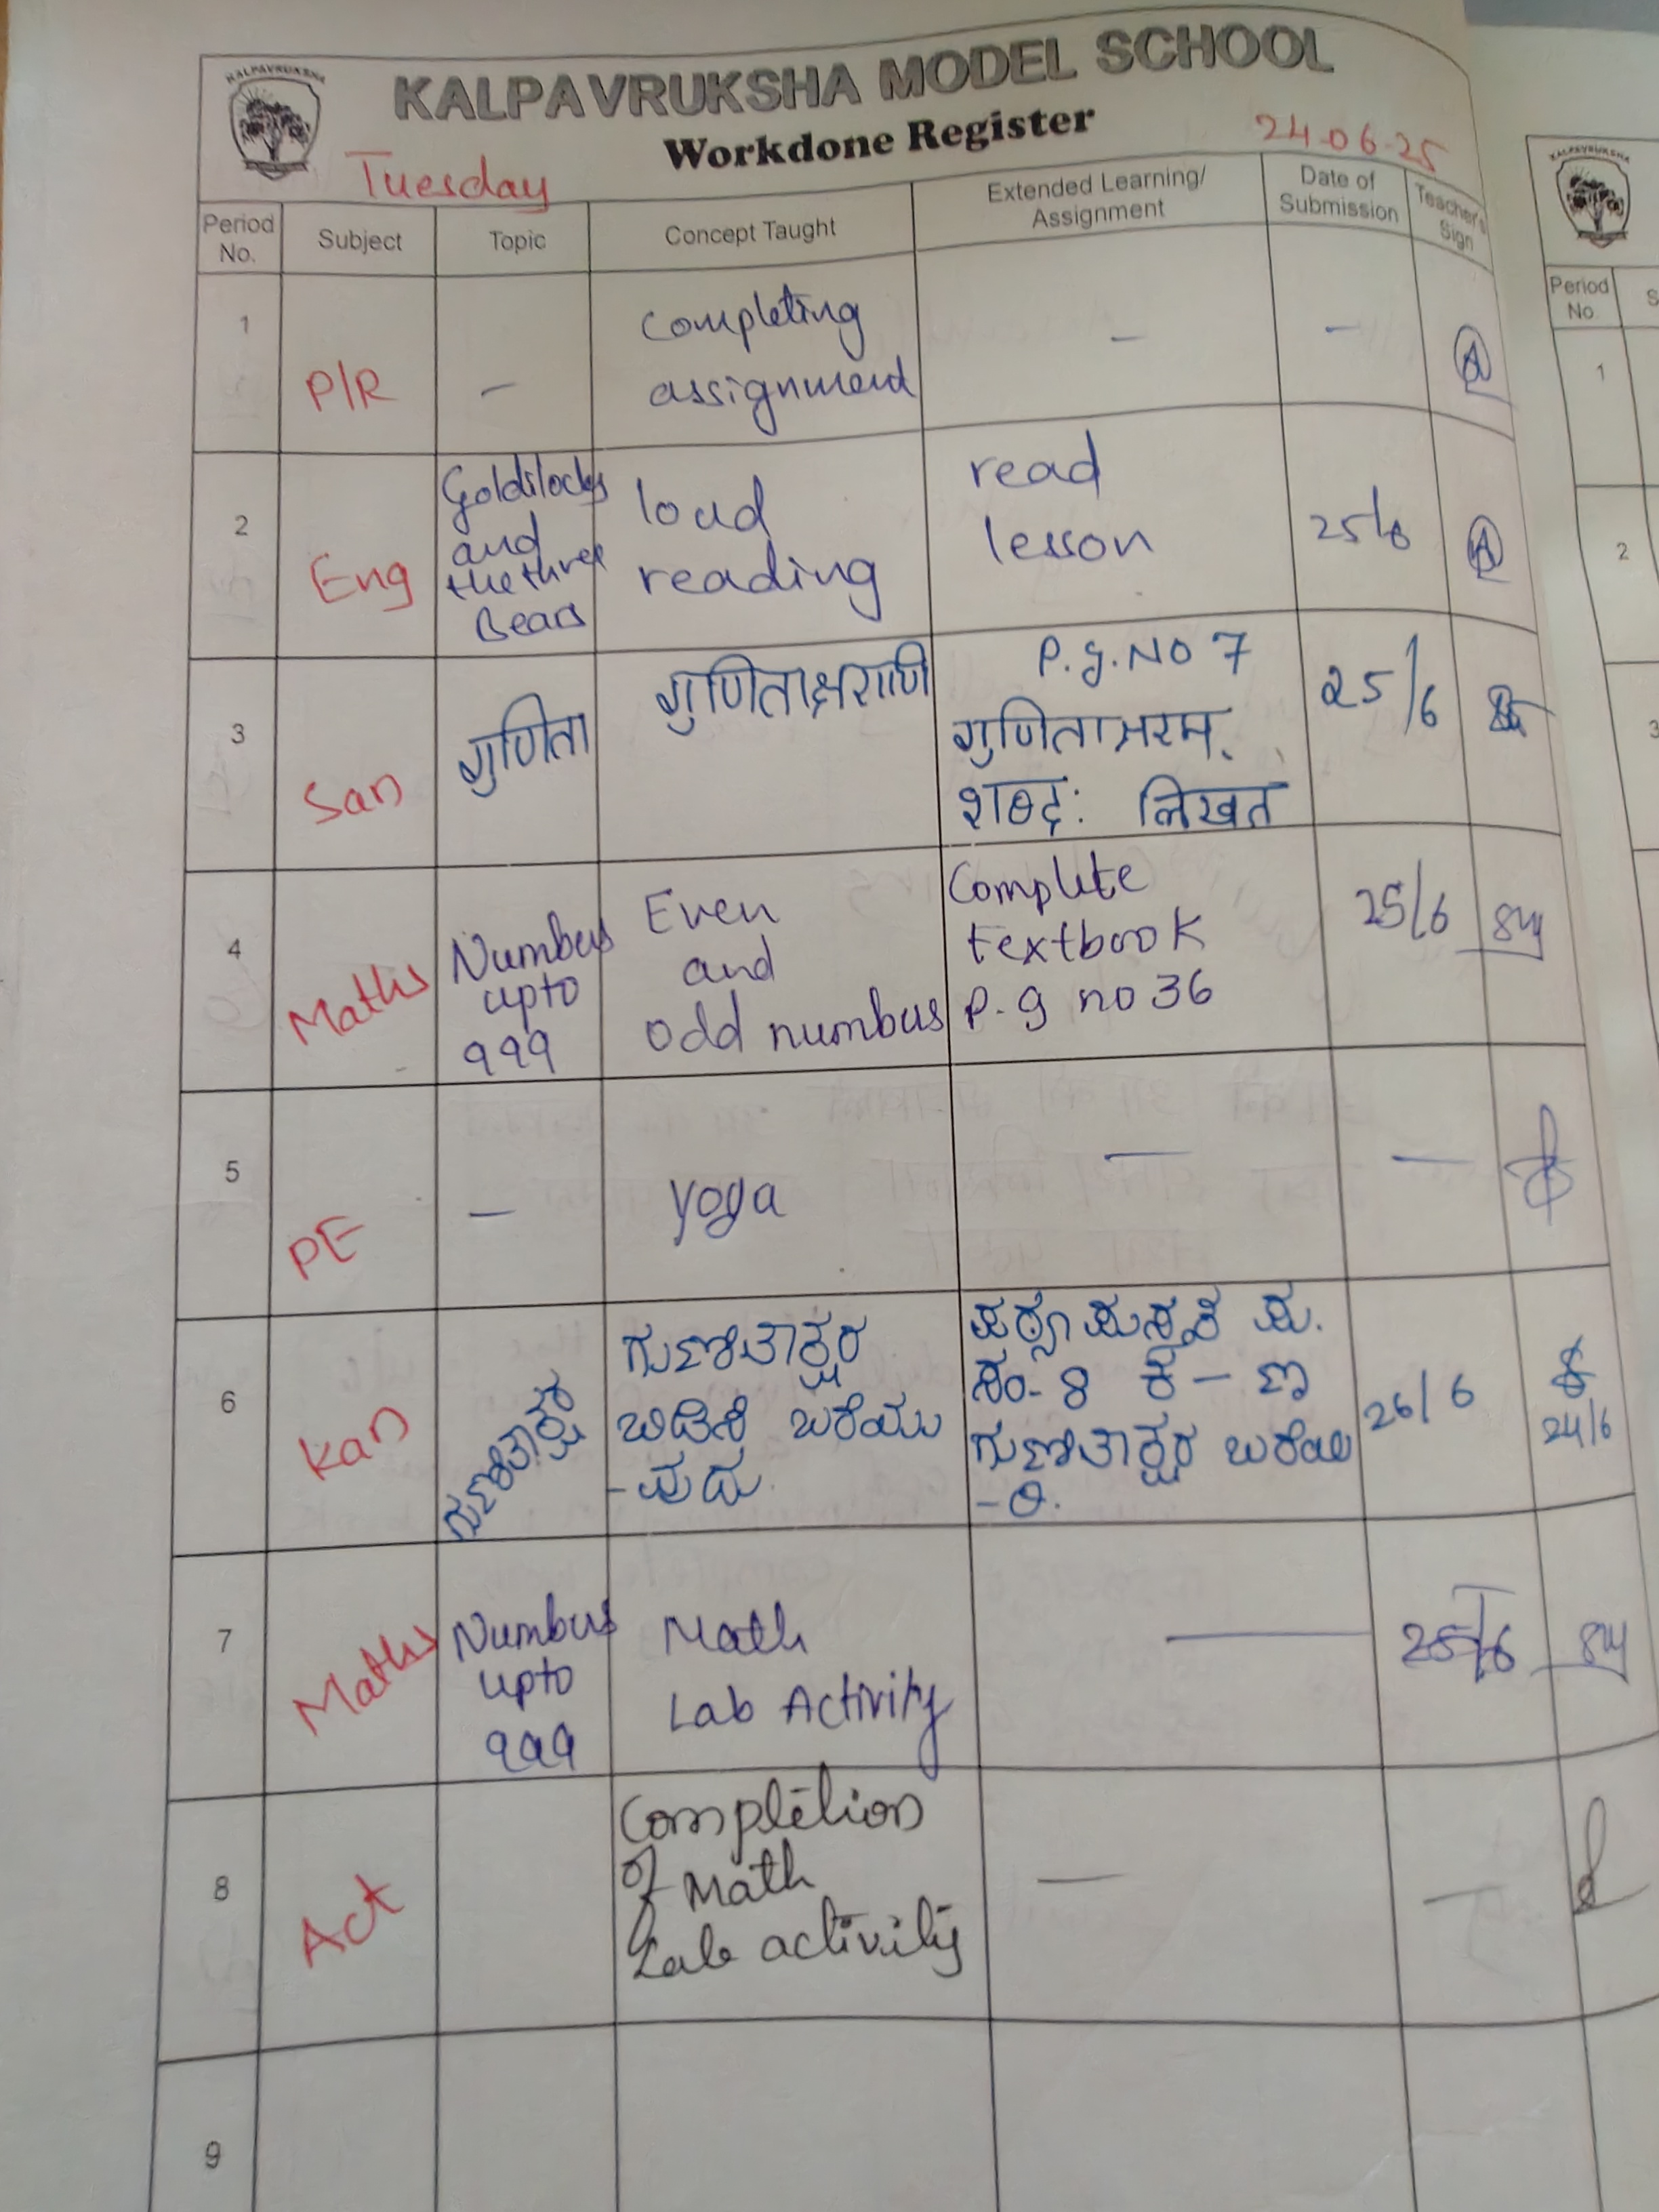 KALPAVRUKSHA
KALPAVRUKSHA MODEL SCHOOL
Workdone Register
Tuesday
24-06-25
Period No. Subject Topic Concept Taught Extended Learning/ Assignment Date of Submission Teacher's Sign
1 P/R - Completing - -
assignment
2 Eng Goldilocks load read 25/6
and reading lesson
the three
Bears
3 San गुणिता गुणिताक्षराणि P.g.NO 7 25/6
गुणिताक्षरम्
शब्द: लिखत
4 Maths Numbers Even Complete 25/6
upto and textbook
999 Odd numbers P.g no 36
5 PE - yoga - -
6 Kan ಗುಣಿತಾಕ್ಷರ ಗುಣಿತಾಕ್ಷರ ಪಠ್ಯ ಪುಸ್ತಕ ಪು. 26/6 24/6
ಬಿಡಿಸಿ ಬರೆಯು ಸಂ-8 ಕ - ಣ
-ವುದು. ಗುಣಿತಾಕ್ಷರ ಬರೆಯಿ
-ರಿ.
7 Maths Numbers Math — 25/6
upto Lab Activity
999
8 Act Completion — —
of Math
Lab activity
9
KALPAVRUKSHA
Period
No.
1
2
3